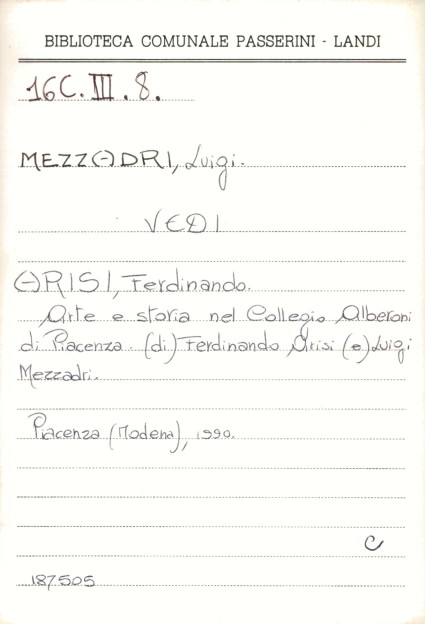 BIBLIOTECA COMUNALE PASSERINI - LANDI
16C.III.8.
MEZZADRI, Luigi.
VEDI
ARISI, Ferdinando.
Arte e storia nel Collegio Alberoni
di Piacenza. (di) Ferdinando Arisi (e) Luigi
Mezzadri.
Piacenza (Modena), 1990.
C
187505